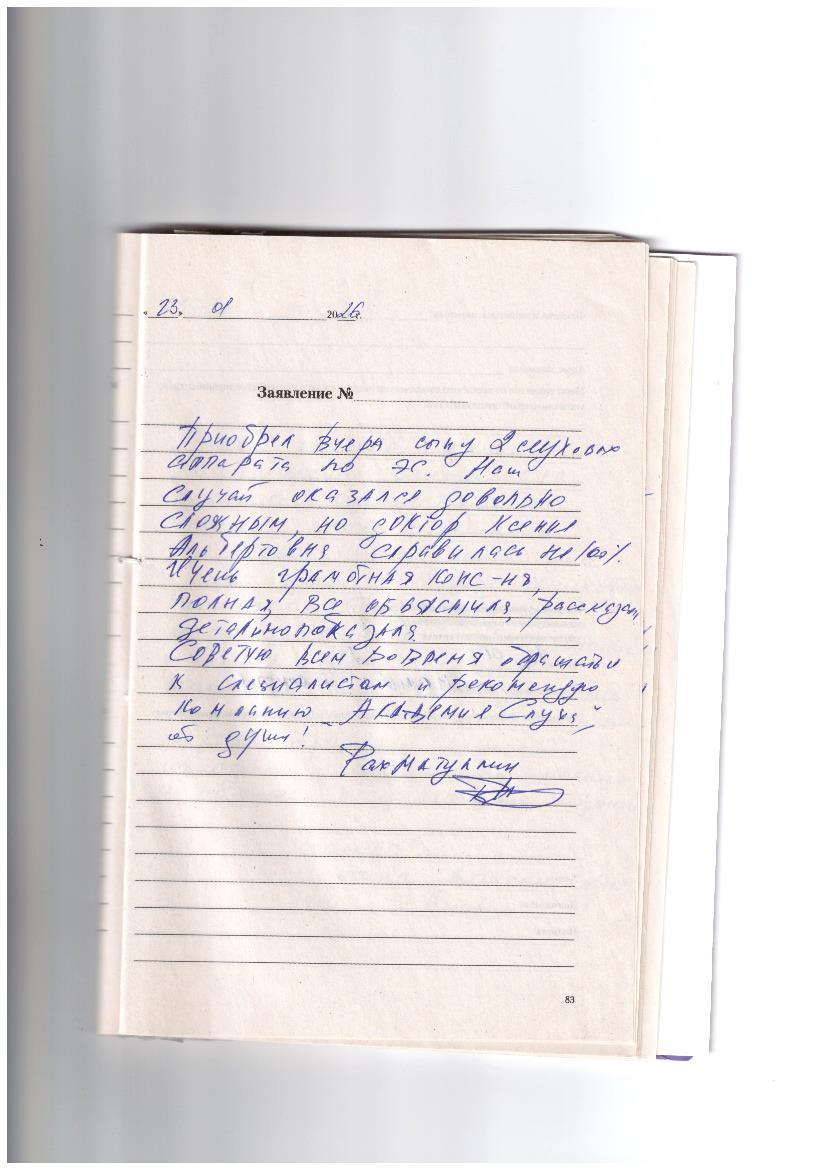 « 23 » 01 2026.
Заявление №
Приобрел вчера сыну 2 слуховых
аппарата по ЭС. Наш
случай оказался довольно
сложным, но доктор Ксения
Альбертовна справилась на 100%.
Очень грамотная конс-ия,
полная, все объяснила, рассказала,
детально показала.
Советую всем вовремя обращаться
к специалистам и рекомендую
компанию "Академия Слуха",
от души!
Рахматуллин
83